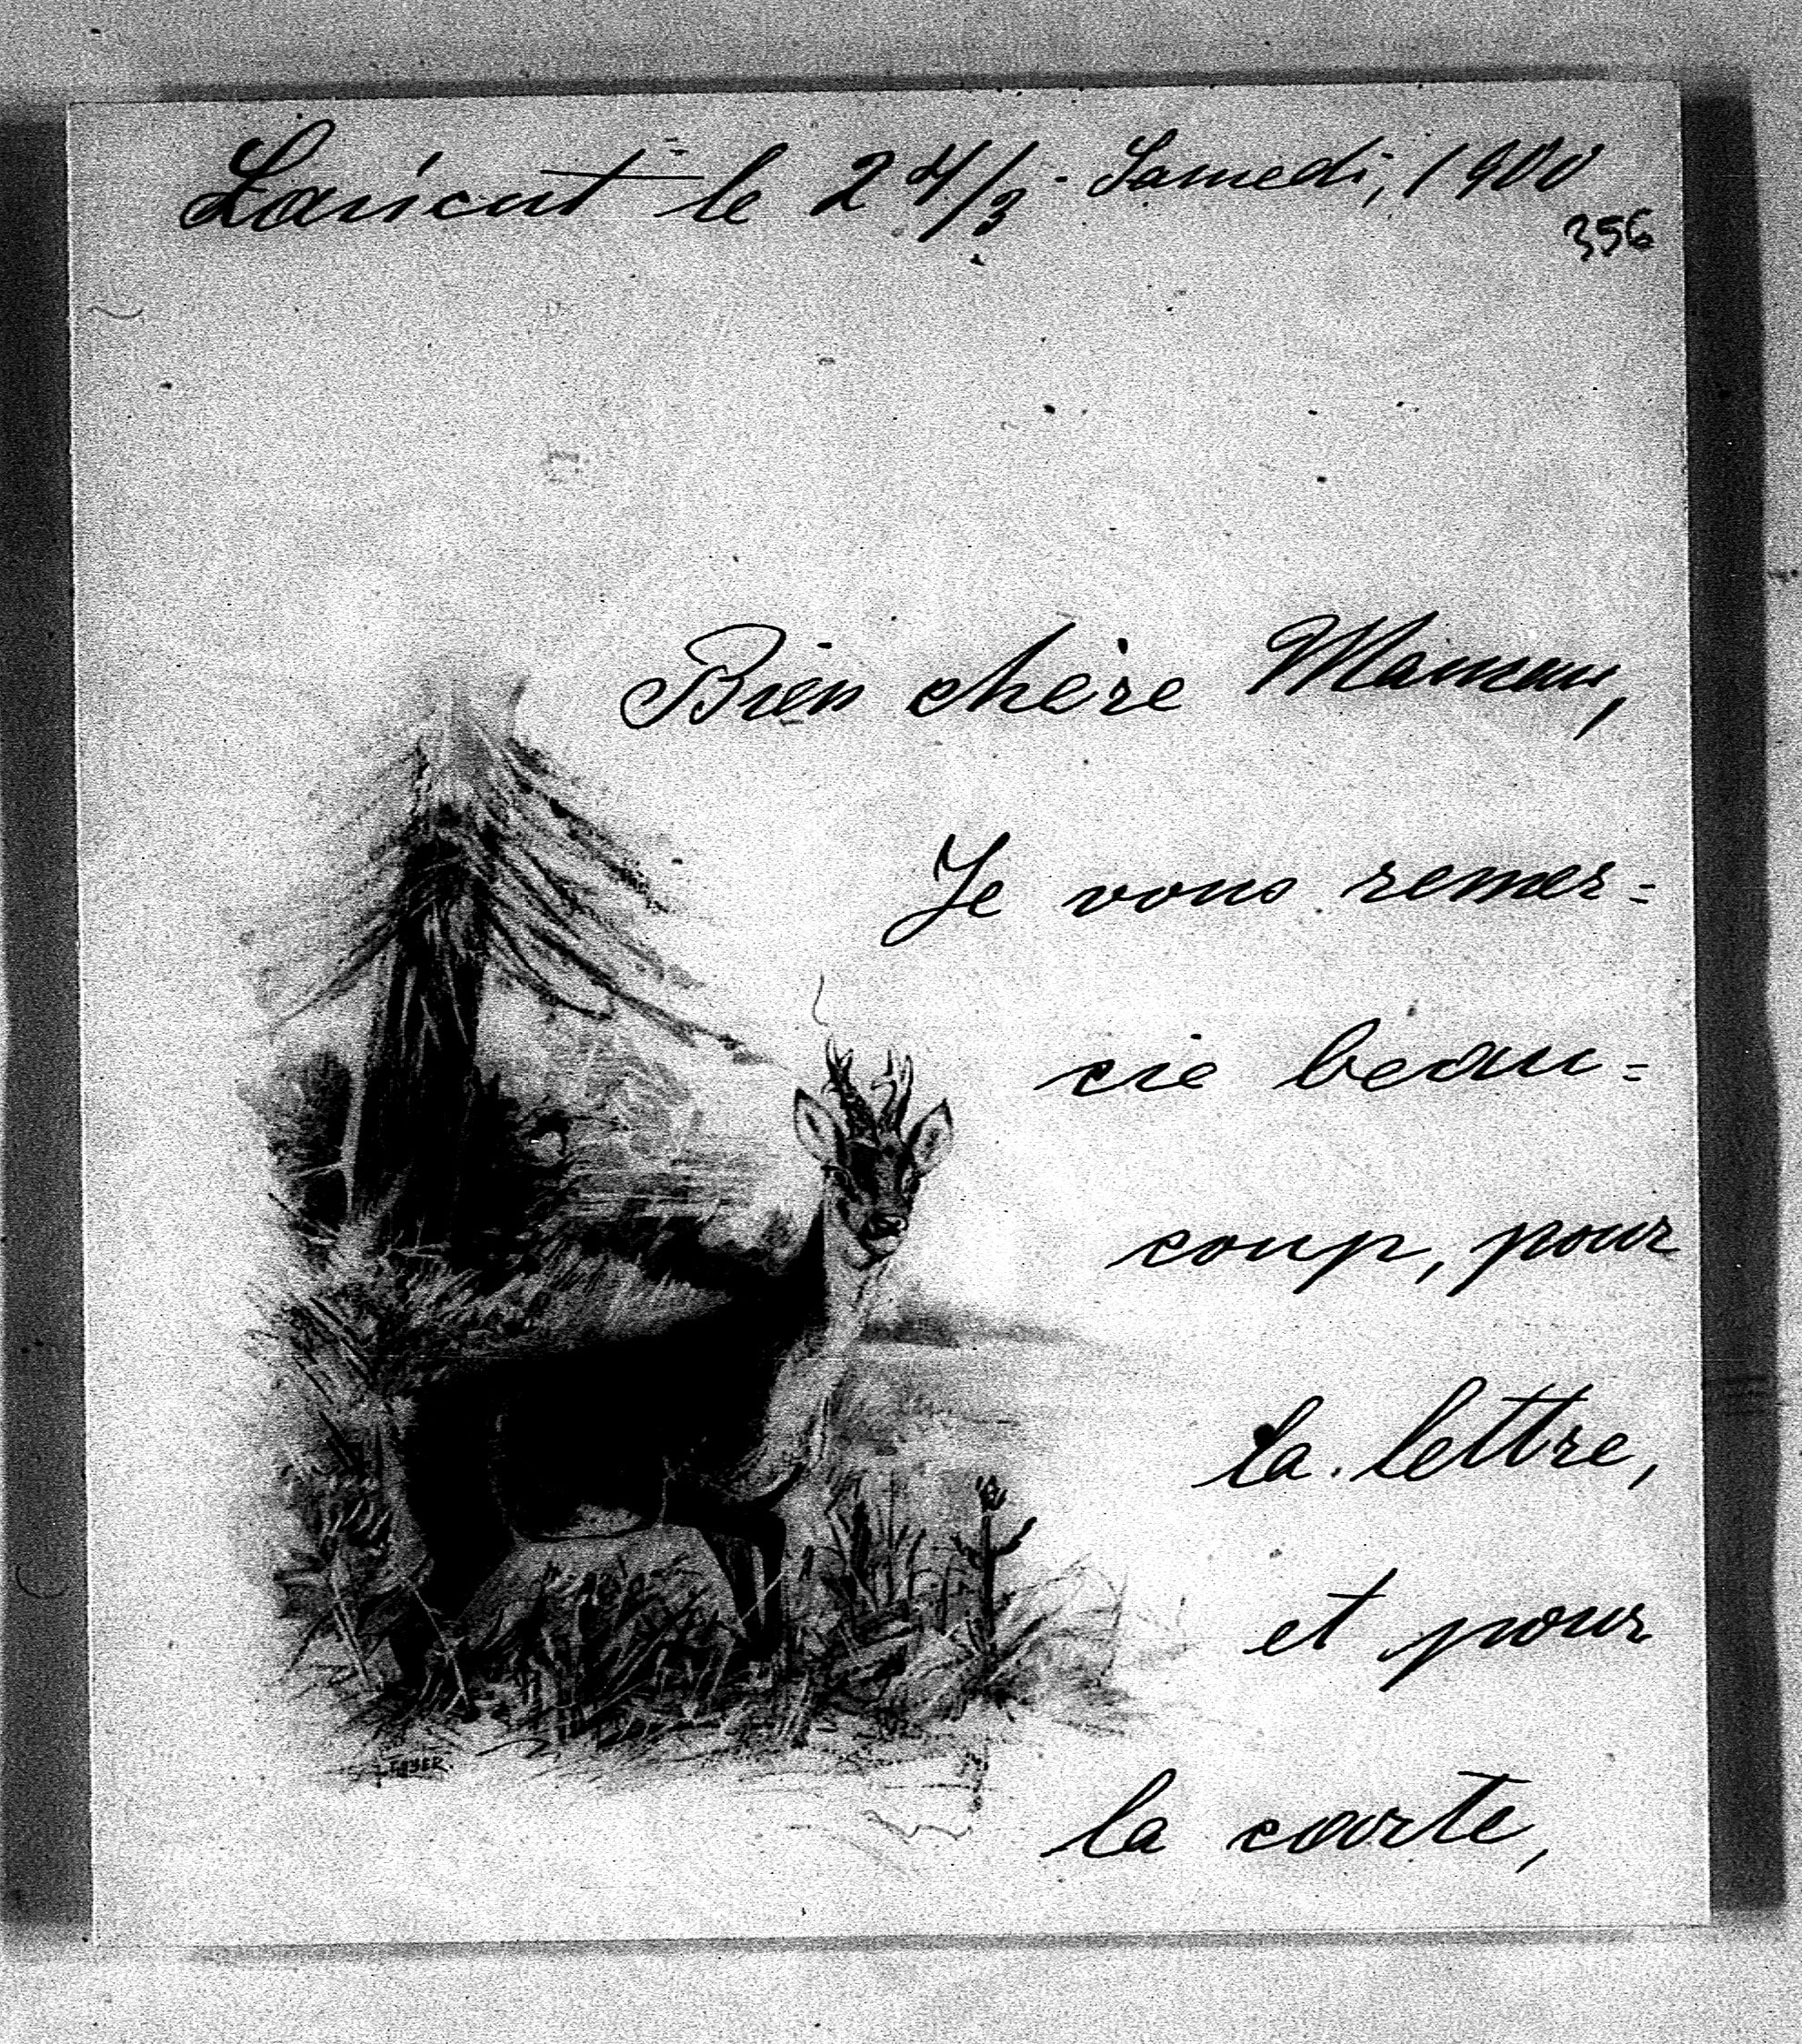 Laricut le 24/3 - Samedi, 1900
356
Bien chère Maman,
Je vous remer=
cie beau=
coup, pour
la lettre,
et pour
la carte,